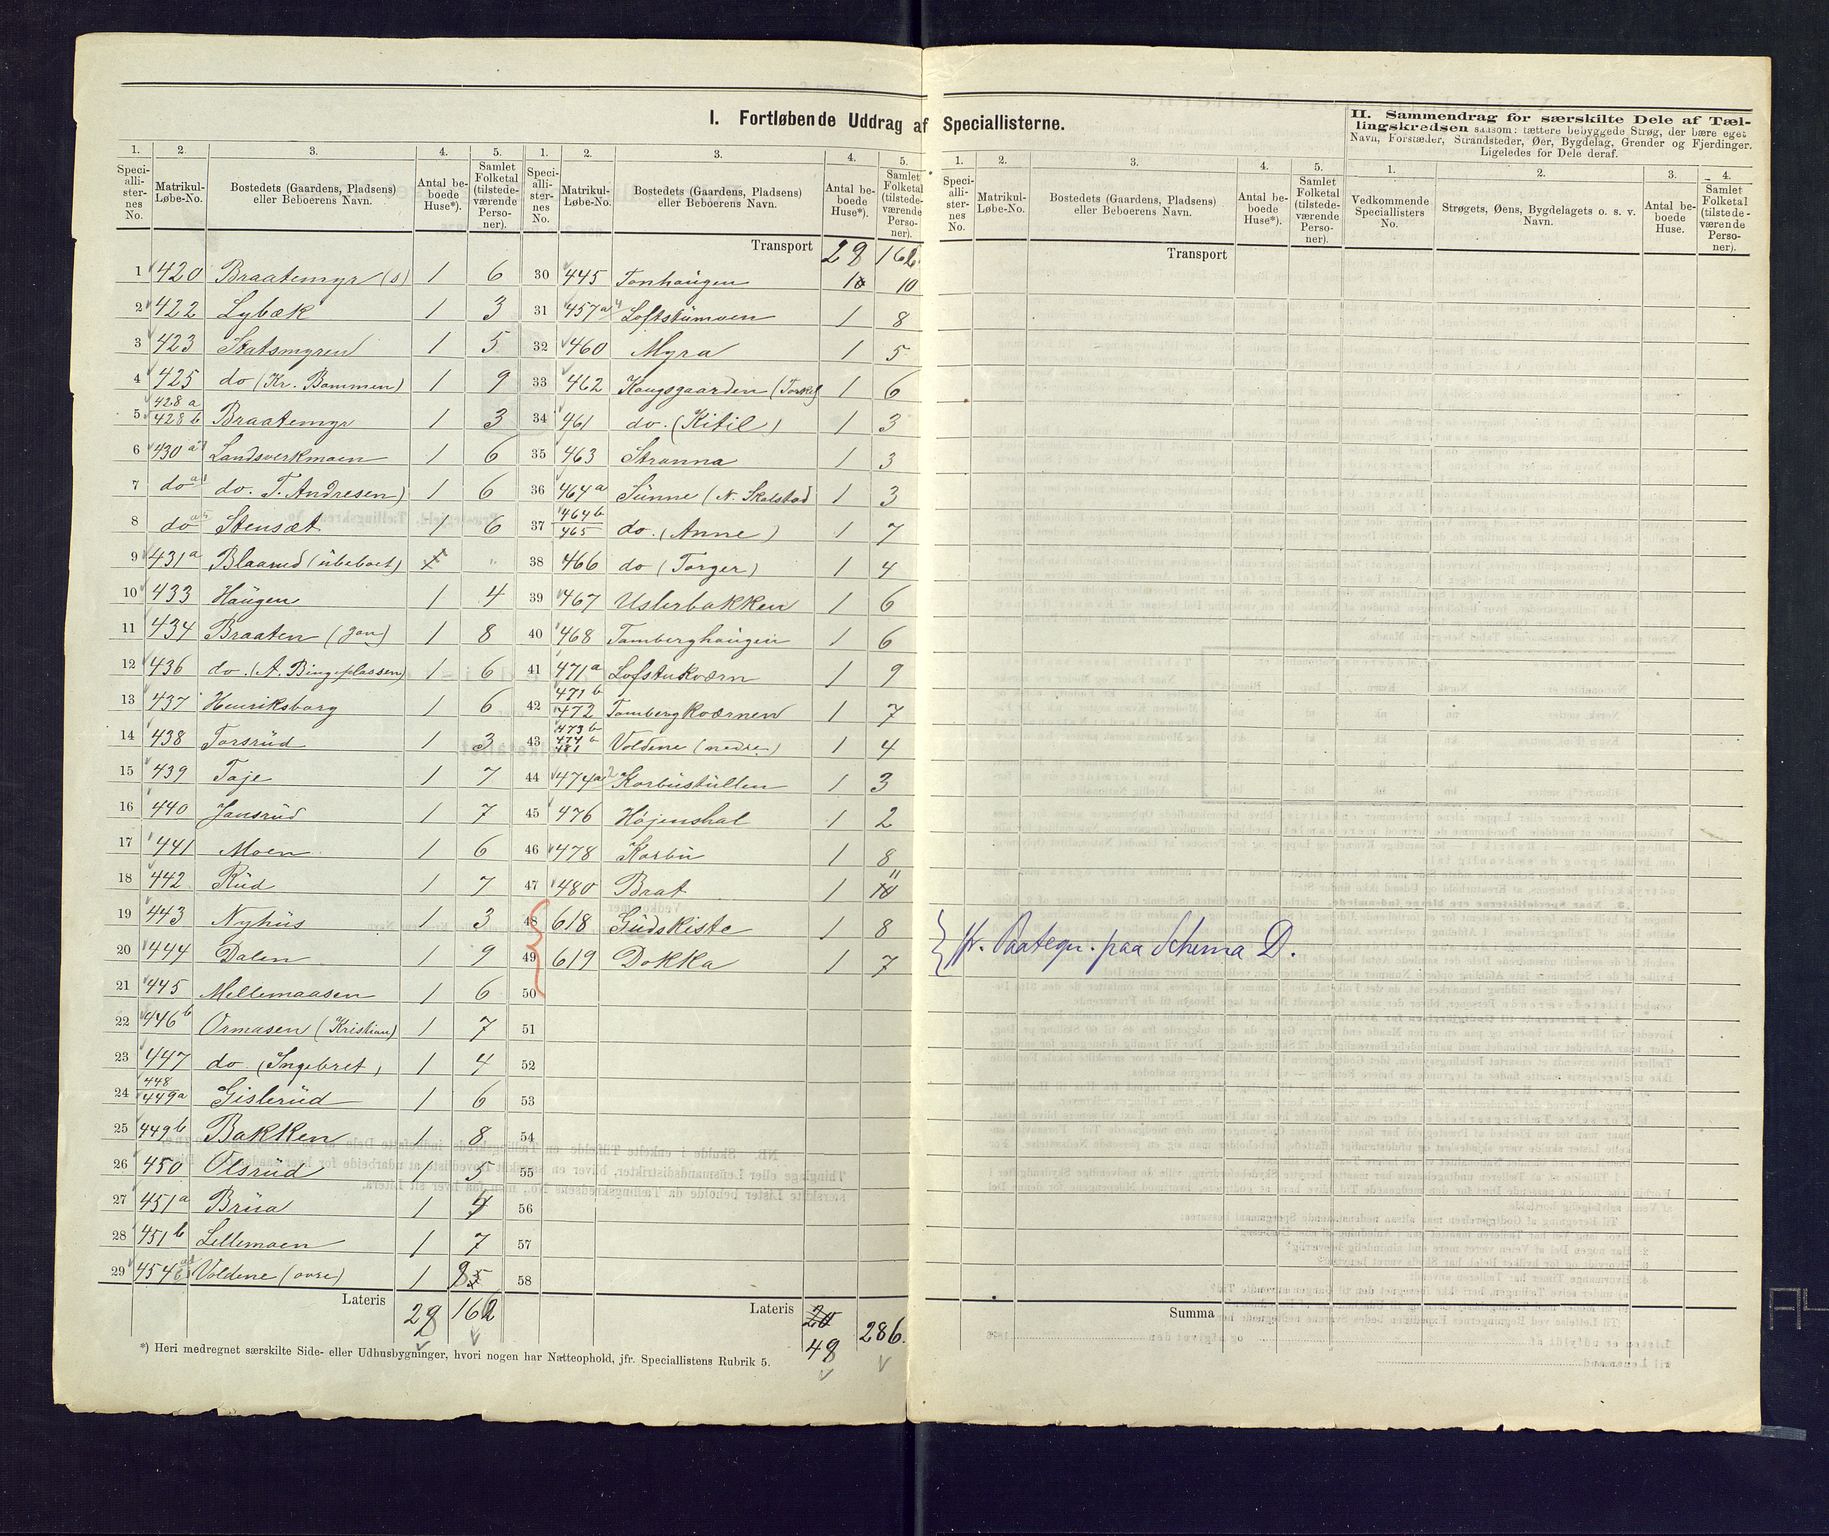 I. Fortløbende Uddrag af Speciallisterne.
II. Sammendrag for særskilte Dele af Tællingskredsen saasom: tættere bebyggede Strøg, der bære eget Navn, Forstæder, Strandsteder, Øer, Bygdelag, Grender og Fjerdinger. Ligeledes for Dele deraf.
1. 2. 3. 4. 5.
Speciallisternes No. Matrikul-Løbe-No. Bostedets (Gaardens, Pladsens) eller Beboerens Navn. Antal beboede Huse*). Samlet Folketal (tilstedeværende Personer).
1 420 Braatemyr (s) 1 6
2 422 Lybæk 1 3
3 423 Skatsmyren 1 5
4 425 do (Kr. Bommen) 1 9
5 428 a 428 b Braatemyr 1 3
6 430 a Landsverkmoen 1 6
7 do do. T. Andresen) 1 6
8 do Stensæt 1 6
9 431 a Blaarud (übeboet) "
10 433 Haugen 1 4
11 434 Braaten (Jan) 1 8
12 436 do. (A. Bingeplassen) 1 6
13 437 Henriksborg 1 6
14 438 Torsrüd 1 3
15 439 Taje 1 7
16 440 Jansrüd 1 7
17 441 Moen 1 6
18 442 Rüd 1 7
19 443 Nyhüs 1 3
20 444 Dalen 1 9
21 445 Mellemaasen 1 6
22 446 b Ormasen (Kristian) 1 7
23 447 do (Ingebret) 1 4
24 448 449a Gislerüd 1 6
25 449 b Bakken 1 8
26 450 Olsrüd 1 5
27 451 a Brüa 1
28 451 b Lellemoen 1 7
29 454 Voldene (øvre) 1 8
Lateris 28 162
1. 2. 3. 4. 5.
Speciallisternes No. Matrikul-Løbe-No. Bostedets (Gaardens, Pladsens) eller Beboerens Navn. Antal beboede Huse*). Samlet Folketal (tilstedeværende Personer).
Transport 28 162
30 445 Tonhaugen 1 10
31 457 a Loftstümoen 1 8
32 460 Myra 1 5
33 462 Kongsgaarden (Torskel) 1 6
34 461 do. (Kitil) 1 3
35 463 Stranna 1 3
36 464 a Sünne (N. Skalstad 1 3
37 464 b 465 do. (Anne) 1 7
38 466 do (Torger) 1 4
39 467 Uslerbakken 1 6
40 468 Tamberghaugen 1 6
41 471 a Lofstukværn 1 9
42 471 b 472 Tambergkværnen 1 7
43 473 b 474 b 481 Voldene (nedre) 1 4
44 474 a Korbüstullen 1 3
45 476 Højenshal 1 2
46 478 Korbü 1 8
47 480 Brat 1 11
48 618 Güdskiste 1 8
49 619 Dokka 1 7
50
51
52
53
54
55
56
57
58
Lateris 48 286.
*) Heri medregnet særskilte Side- eller Udhusbygninger, hvori nogen har Natteophold, jfr. Speciallistens Rubrik 5.
1. 2. 3. 4. 5.
Speciallisternes No. Matrikul-Løbe-No. Bostedets (Gaardens, Pladsens) eller Beboerens Navn. Antal beboede Huse*). Samlet Folketal (tilstedeværende Personer).
Transport
jfr. Paategn. paa Schema D.
Summa
1. 2. 3. 4.
Vedkommende Speciallisters No. Strøgets, Øens, Bygdelagets o. s. v. Navn. Antal beboede Huse. Samlet Folketal (tilstedeværende Personer).